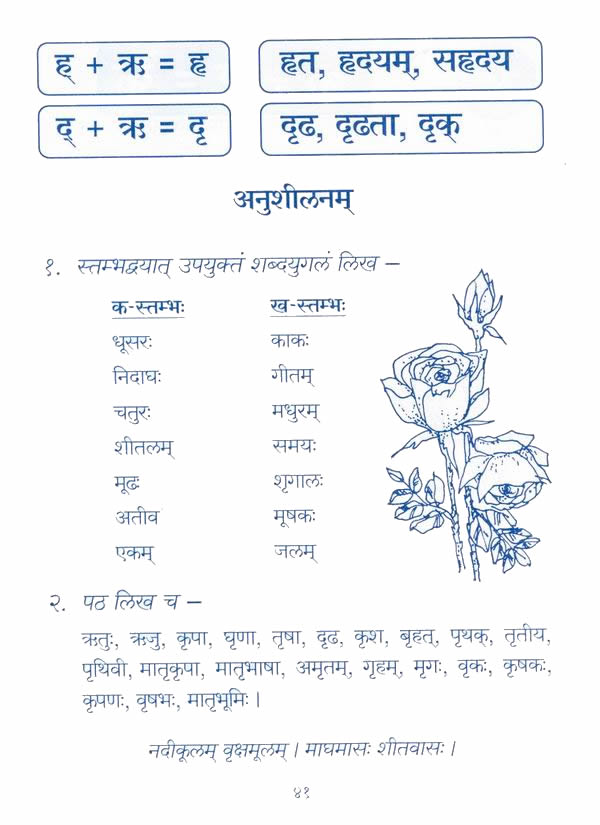 ह् + ऋ = हृ हृत, हृदयम्, सहृदय
द् + ऋ = दृ दृढ, दृढता, दृक्
अनुशीलनम्
१. स्तम्भद्वयात् उपयुक्तं शब्दयुगलं लिख –
क-स्तम्भः ख-स्तम्भः
धूसरः काकः
निदाघः गीतम्
चतुरः मधुरम्
शीतलम् समयः
मूढः शृगालः
अतीव मूषकः
एकम् जलम्
२. पठ लिख च –
ऋतुः, ऋजु, कृपा, घृणा, तृषा, दृढ, कृश, बृहत्, पृथक्, तृतीय,
पृथिवी, मातृकृपा, मातृभाषा, अमृतम्, गृहम्, मृगः, वृकः, कृषकः,
कृपणः, वृषभः, मातृभूमिः।
नदीकूलम् वृक्षमूलम्। माघमासः शीतवासः।
४१